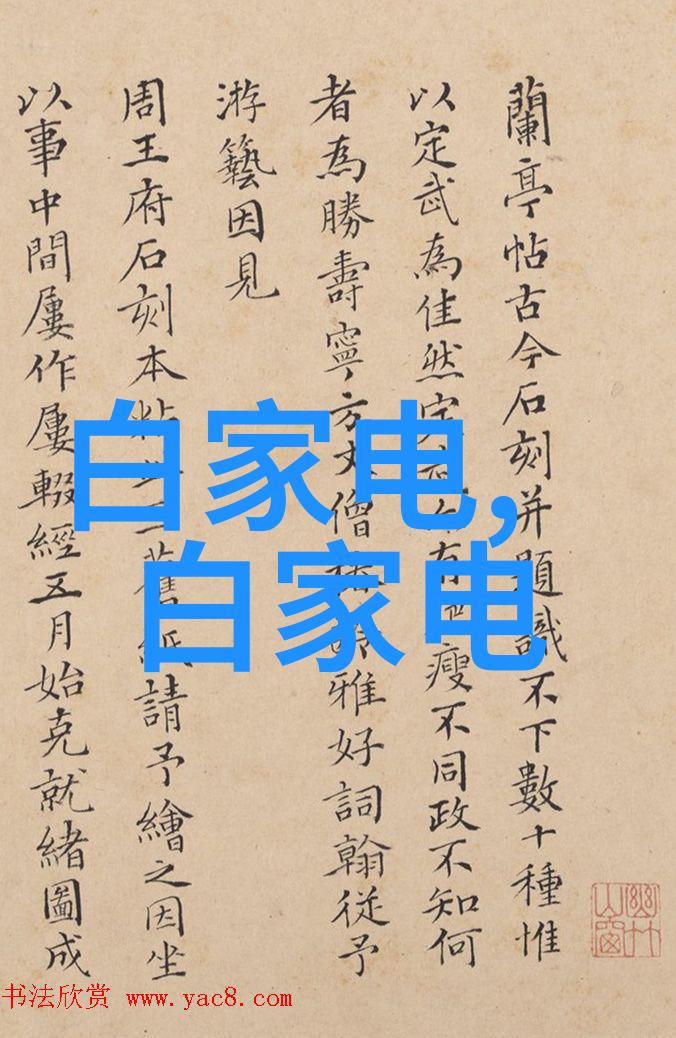 蘭亭帖古今石刻并題識不下數十種惟
以定武為佳然定有瘦不同政不知何
者為勝壽寧方丈僧雅好詞翰從予
游藝因見
周王府石刻本粘二舊紙請予繪之因坐
以事中間屢作屢輟經五月始克就緒圖成
白家电,
白家电
幽竹山窗
书法欣赏 www.yac8.com